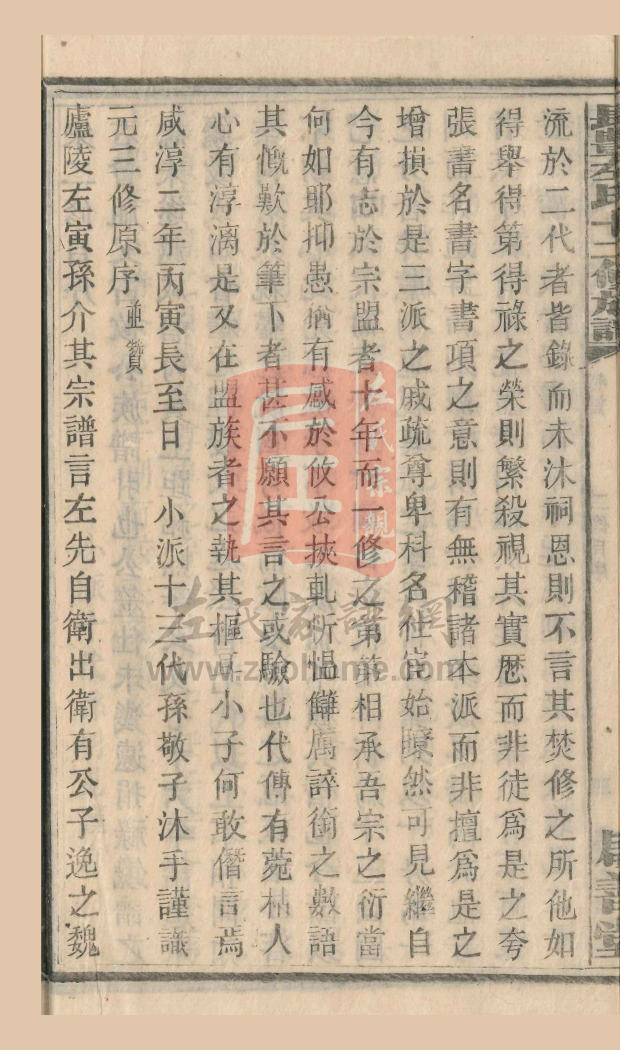 流於二代者皆錄而未沐祠恩則不言其焚修之所他如
得舉得第得祿之榮則繁殺視其實歷而非徒為是之夸
張書名書字書項之意則有無稽諸本派而非擅為是之
增損於是三派之戚疏尊卑科名仕宦始瞭然可見繼自
今有志於宗盟者十年而一修之第第相承吾宗之衍當
何如耶抑愚猶有感於攸公挾軋所慍讎厲誶銜之數語
其慨歎於筆下者甚不願其言之或驗也代傳有菀枯人
心有淳漓是又在盟族者之執其樞耳小子何敢僭言焉
咸淳二年丙寅長至日 小派十三代孫敬子沐手謹識
元三修原序 並贊
廬陵左寅孫介其宗譜言左先自衛出衛有公子逸之魏
左氏宗親
左氏家譜網
www.zuohome.com